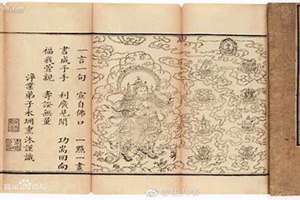 一言一句 宣自佛口 一點一畫
書成于手 利廣見聞 功 回向
福我萱親 壽證無量
淨業弟子永 熏沐謹識